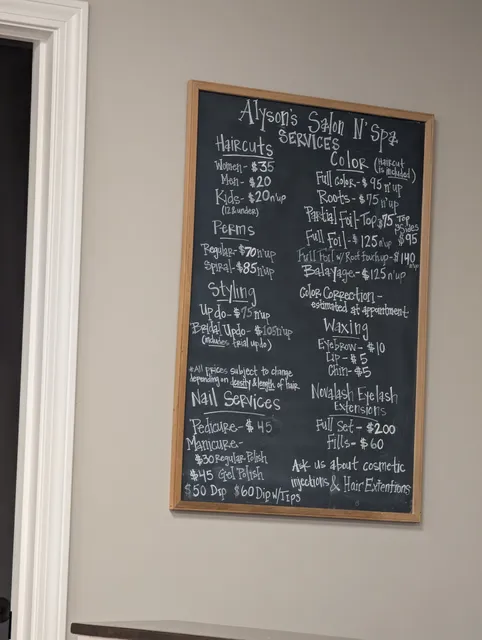 Alyson's Salon N' Spa
SERVICES
Haircuts
Women - $35
Men - $20
Kids - $20 n'up
(12 & under)
Perms
Regular - $70 n'up
Spiral - $85 n'up
Styling
Updo - $75 n'up
Bridal Updo - $105 n'up
(includes trial updo)
*All prices subject to change
depending on density & length of hair
Nail Services
Pedicure - $45
Manicure -
$30 Regular Polish
$45 Gel Polish
$50 Dip $60 Dip w/Tips
Color (Haircut
is included)
Full color - $95 n'up
Roots - $75 n'up
Partial Foil - Top $75 Top
& Sides
$95
Full Foil - $125 n'up
Full Foil w/ Root touchup - $140
n'up
Balayage - $125 n'up
Color Correction -
estimated at appointment
Waxing
Eyebrow - $10
Lip - $5
Chin - $5
Novalash Eyelash
Extensions
Full Set - $200
Fills - $60
Ask us about cosmetic
injections & Hair Extentions